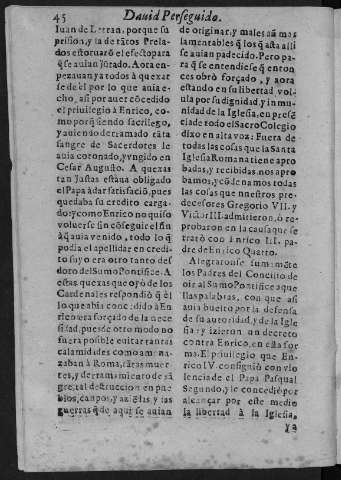 45
Dauid Perseguido.
Iuan de Letran, porque su
prision, y la de tātos Prela-
dos estoruarō el efecto para
q̄ se auian jūtado. Aora em-
pezauan y a todos à quexar
se de el por lo que auia he-
cho, assi por auer cōcedido
el priuilegio à Enrico, como
como porq̄ siendo sacrilego,
y auiendo derramado tāta
sangre de Sacerdotes le
auia coronado, y vngido en
Cesar Augusto. A quexas
tan justas estaua obligado
el Papa à dar satisfació, pues
quedaba su credito carga-
do: y como Enrico no quiso
voluerse sin cōseguir el fin
à q̄ auia venido, todo lo q̄
podia el apellidar en credi-
to suyo era otro tanto des
doro del Sumo Pontifice. A
estas quexas que oyò de los
Cardenales respondiò q̄ ēl
lo que abia concedido à En-
rico era forçado de la nece
sidad, pues de otro modo no
fuera posible euitar tantas
calamidades como amena-
zaban à Roma, tātas muer-
tes, y derramamiento de sā
gre, tal destruccion en pue
blos, campos, y aziēdas, y las
guerras q̄ de aqui se auian
de originar, y males aū mas
lamentables q̄ los q̄ asta alli
se auian padecido. Pero pa-
ra q̄ se entendiese q̄ enton
ces obrò forçado, y aora
estando en su libertad vol-
uia por su dignidad, y inmu-
nidad de la Iglesia, en presē
cia de todo el Sacro Colegio
dixo en alta voz: Fuera de
todas las cosas que la Santa
Iglesia Romana tiene apro
badas, y recibidas, nos apro
bamos, y cōdenamos todas
las cosas que nuestros pre-
decesores Gregorio VII. y
Victor III. admitieron, ò re-
probaron en la causa que se
tratò con Enrico III. pa-
dre de Enrico Quarto.
Alegraronse sumamēte
los Padres del Concilio de
oir al Sumo Pontifice aque
llas palabras, con que assi
auia buelto por la defensa
de su autoridad, y de la Igle
sia: y izieron un decreto
contra Enrico, en esta for
ma. El priuilegio que En-
rico IV. consiguiò con vio
lencia de el Papa Pasqual
Segundo, y le concediò por
alcançar por este medio
la libertad à la Iglesia,
ya